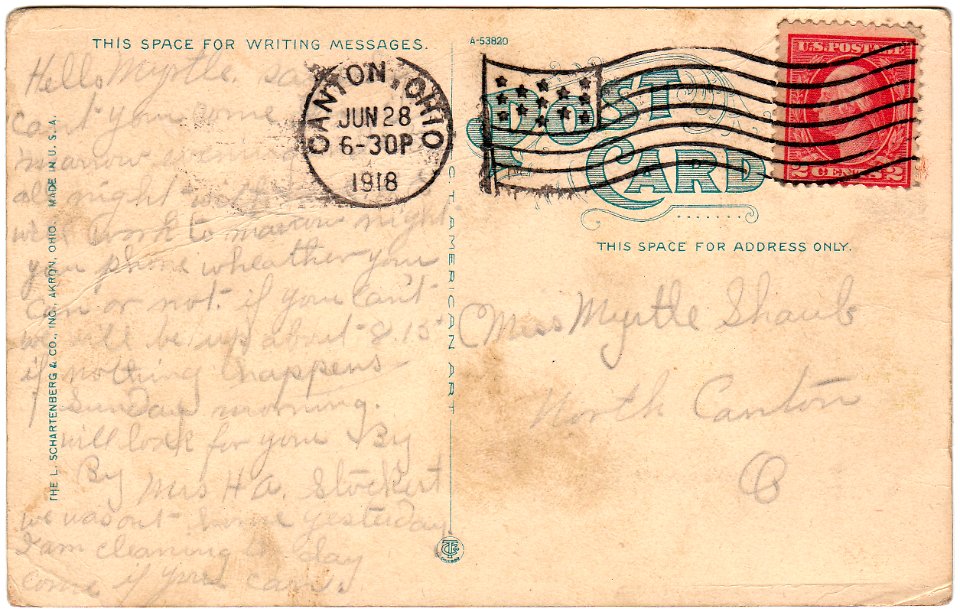 THIS SPACE FOR WRITING MESSAGES.
A-53820
Hello Myrtle. say
can't you come
morrow evening
all night
will work to morrow night
you phone wheather you
can or not. if you can't
we will be up about 8.15
if nothing happens
Sunday morning.
will look for you By
By
Mrs H A. Stockert
we was out home yesterday
I am cleaning to day
come if you can.
THE L. SCHARTENBERG & CO., INC. AKRON, OHIO. MADE IN U.S.A.
CT AMERICAN ART
CANTON, OHIO
JUN 28
6-30P
1918
POST
CARD
U.S. POSTAGE
2 CENTS 2
THIS SPACE FOR ADDRESS ONLY.
Miss Myrtle Shaub
North Canton
O